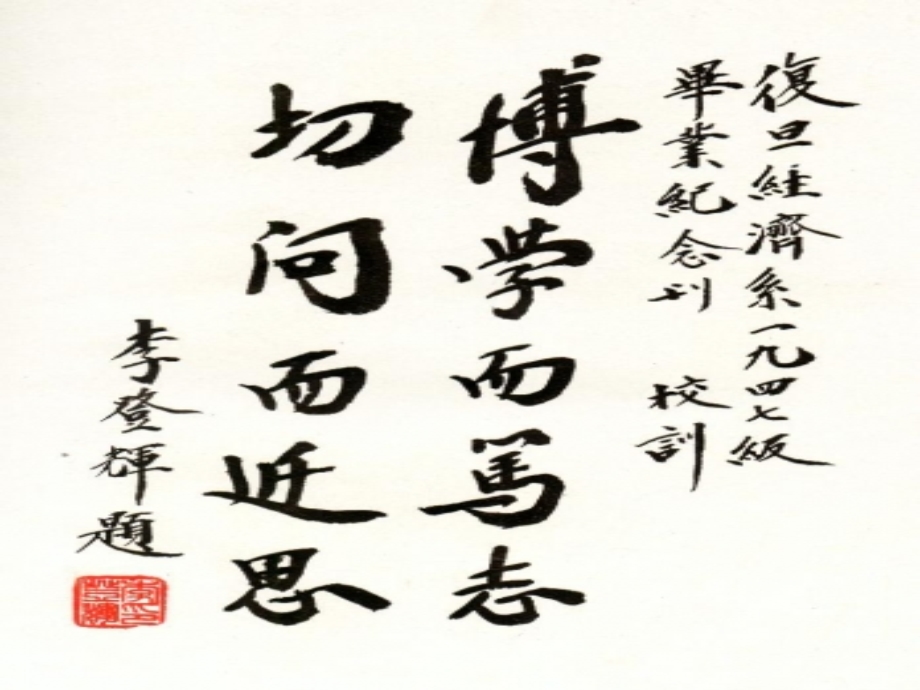 復旦經濟系一九四七級
畢業紀念刊 校訓
博學而篤志
切問而近思
李登輝題